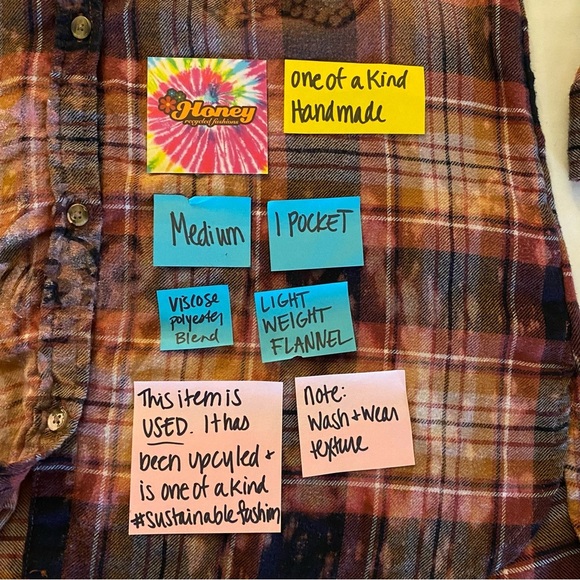 Honey
recycled fashions
one of a Kind
Handmade
Medium
1 POCKET
Viscose
polyester
Blend
LIGHT
WEIGHT
FLANNEL
This item is
USED. It has
been upcyled +
is one of a kind
#sustainable fashion
note:
Wash + Wear
texture